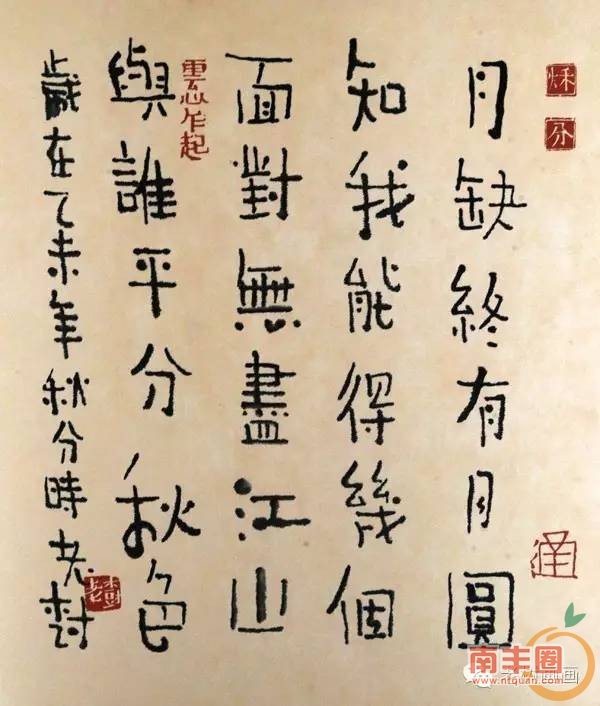 秋分
月缺終有月圓
知我能得幾個
面對無盡江山
與誰平分秋色
乍起
歲在乙未年秋分時老樹
老樹
南丰圈
www.nfquan.com